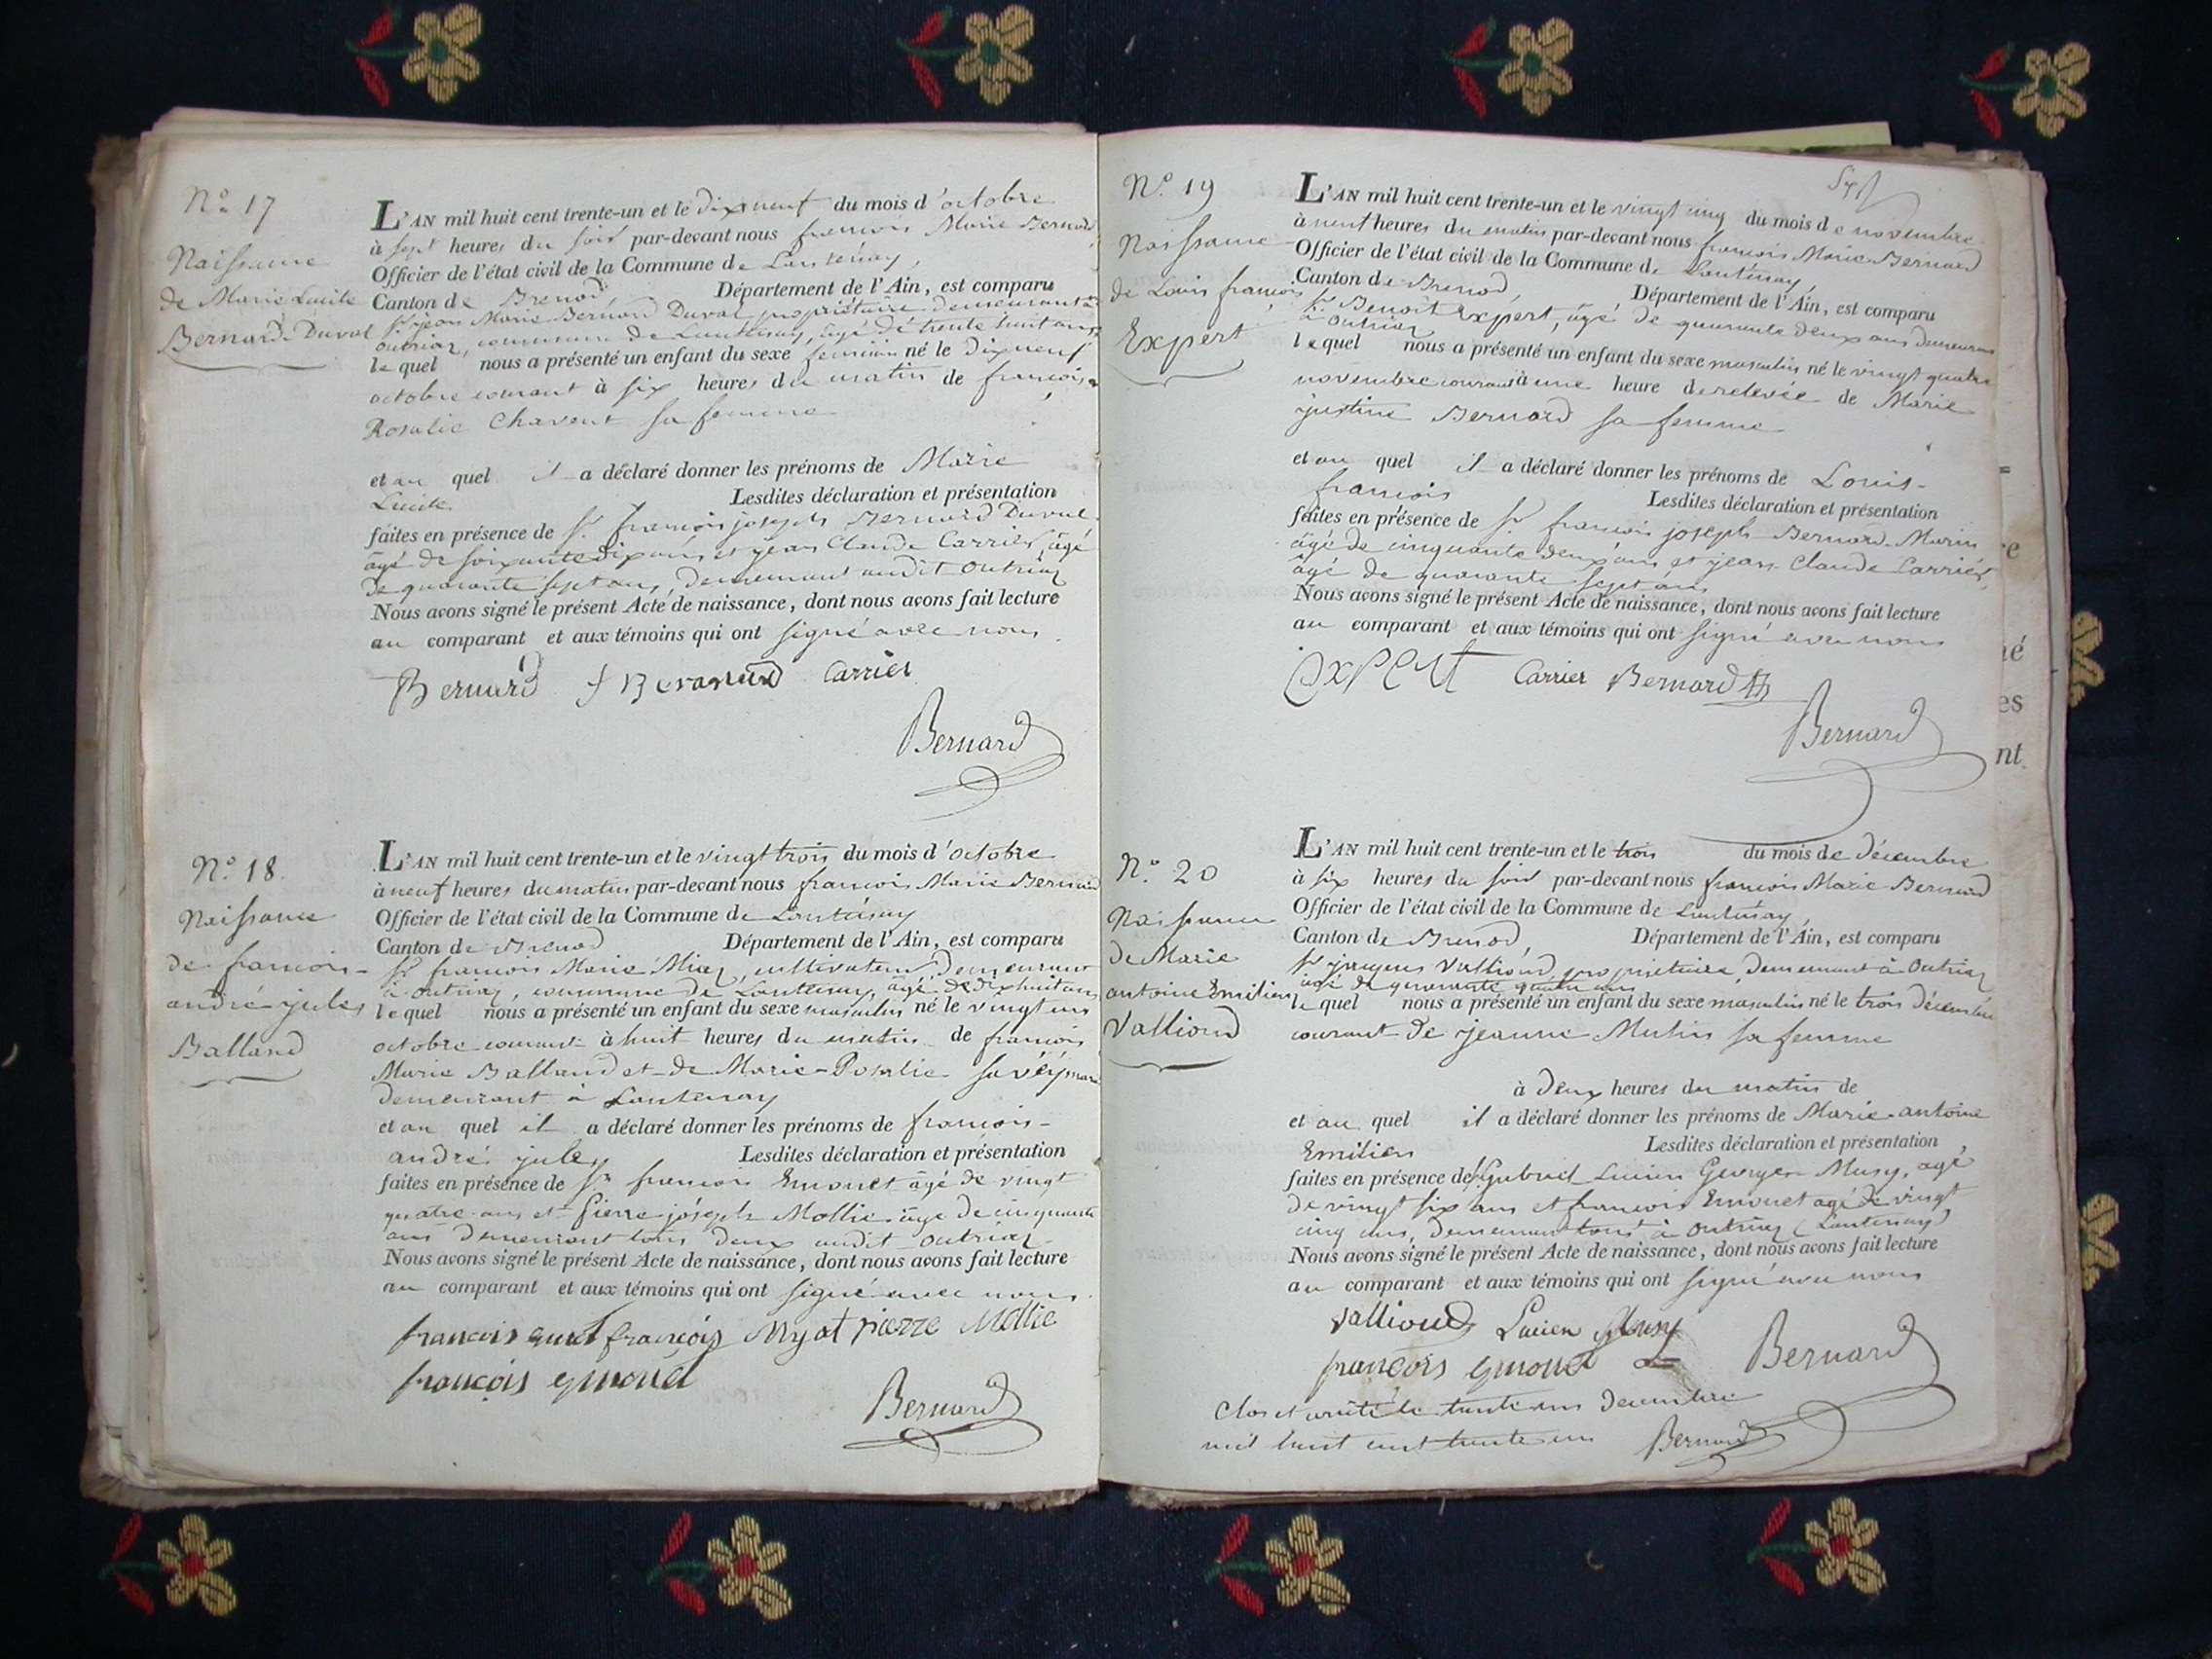 N.º 17
Naissance
de Marie Lucile
Bernard-Duval
L'AN mil huit cent trente-un et le dix neuf du mois d'octobre
à sept heures du soir par-devant nous francois Marie Bernard
Officier de l'état civil de la Commune de Lantenay,
Canton de Brenod, Département de l'Ain, est comparu
Sr jean Marie Bernard Duval propriétaire demeurant à
outriaz, commune de Lantenay, âgé de trente huit ans
lequel nous a présenté un enfant du sexe feminin né le dix neuf
octobre courant à six heures du matin de françoise
Rosalie Chavent sa femme
et au quel il a déclaré donner les prénoms de Marie
Lucile Lesdites déclaration et présentation
faites en présence de Sr. francois joseph Bernard Duval
âgé de soixante dix ans et jean Claude Carrier, âgé
de quarante sept ans, demeurant audit outriaz
Nous avons signé le présent Acte de naissance, dont nous avons fait lecture
au comparant et aux témoins qui ont signé avec nous.
Bernard f Bernard Carrier
Bernard
N.º 18.
Naissance
de francois-
andré jules
Balland
L'AN mil huit cent trente-un et le vingt trois du mois d'octobre
à neuf heures du matin par-devant nous francois Marie Bernard
Officier de l'état civil de la Commune de Lantenay
Canton de Brenod Département de l'Ain, est comparu
Sr francois Marie, cultivateur, demeurant
à outriaz, commune de Lantenay, âgé de dix huit ans
lequel nous a présenté un enfant du sexe masculin né le vingt un
octobre courant à huit heures du matin de francois
Marie Balland et de Marie-Rosalie
demeurant à Lantenay
et au quel il a déclaré donner les prénoms de francois-
andré jules Lesdites déclaration et présentation
faites en présence de Sr francois Emonet âgé de vingt
quatre ans et Pierre joseph Mollie âgé de cinquante
ans demeurant tous deux audit outriaz
Nous avons signé le présent Acte de naissance, dont nous avons fait lecture
au comparant et aux témoins qui ont signé avec nous.
francois françois pierre Mollie
françois emonet
Bernard
N.º 19
Naissance
de Louis francois
Expert
L'AN mil huit cent trente-un et le vingt cinq du mois de novembre
à neuf heures du matin par-devant nous francois Marie Bernard
Officier de l'état civil de la Commune de Lantenay,
Canton de Brenod, Département de l'Ain, est comparu
Sr Benoit Expert, âgé de quarante deux ans demeurant
à outriaz
lequel nous a présenté un enfant du sexe masculin né le vingt quatre
novembre courant à une heure de relevée de Marie
justine Bernard sa femme
et au quel il a déclaré donner les prénoms de Louis-
francois Lesdites déclaration et présentation
faites en présence de Sr francois joseph Bernard-Marin
âgé de cinquante deux ans et jean Claude Carrier,
âgé de quarante sept ans
Nous avons signé le présent Acte de naissance, dont nous avons fait lecture
au comparant et aux témoins qui ont signé avec nous
Expert Carrier Bernard
Bernard
N.º 20
Naissance
de Marie
antoine Emilien
Vallioud
L'AN mil huit cent trente-un et le trois du mois de décembre
à six heures du soir par-devant nous francois Marie Bernard
Officier de l'état civil de la Commune de Lantenay,
Canton de Brenod, Département de l'Ain, est comparu
Sr jacques Vallioud, propriétaire, demeurant à outriaz
âgé de quarante quatre ans
lequel nous a présenté un enfant du sexe masculin né le trois décembre
courant de jeanne Mutin sa femme
à deux heures du matin de
et au quel il a déclaré donner les prénoms de Marie-antoine
Emilien Lesdites déclaration et présentation
faites en présence de Sr Gabriel Lucien Georges Musy, agé
de vingt six ans et francois Emonet agé de vingt
cinq ans, demeurant tous à outriaz (Lantenay)
Nous avons signé le présent Acte de naissance, dont nous avons fait lecture
au comparant et aux témoins qui ont signé avec nous
Vallioud Lucien Musy
françois emonet Bernard
Clos et arrêté le trente un decembre
mil huit cent trente un Bernard